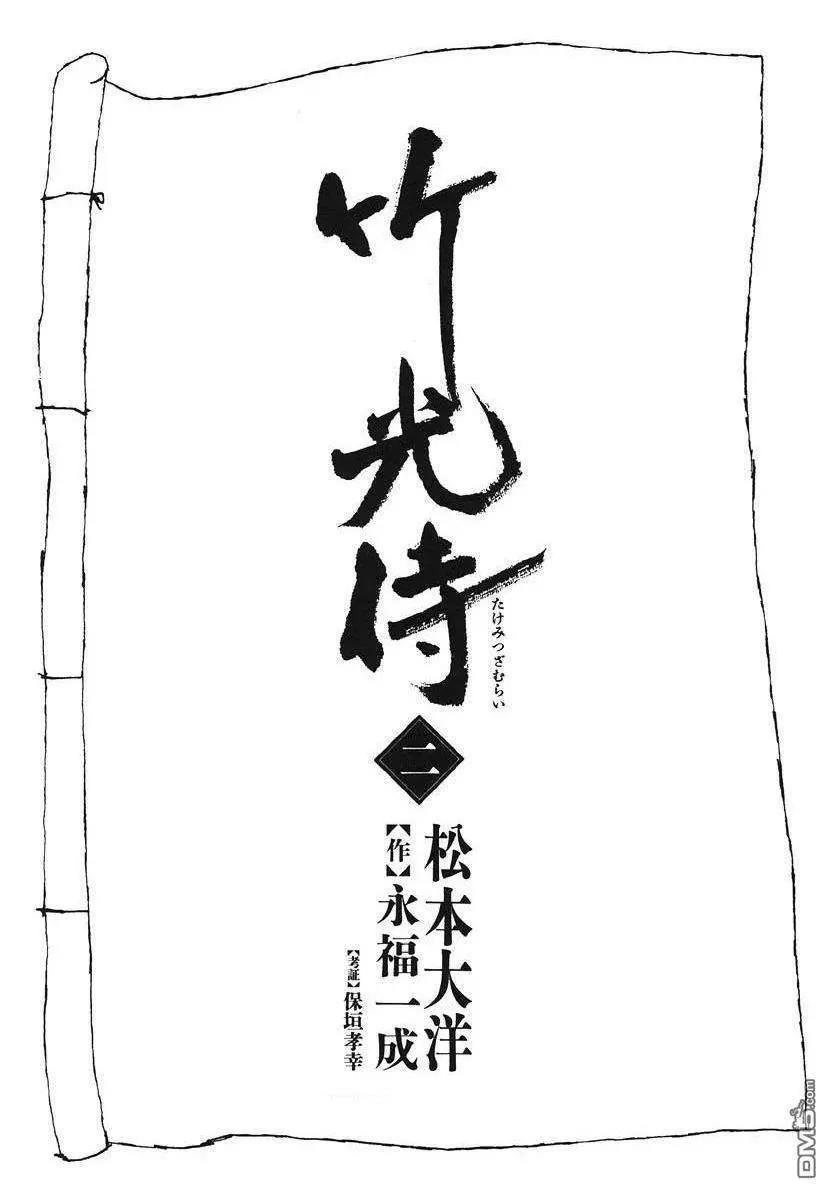 竹光侍
たけみつざむらい
二
松本大洋
【作】永福一成
【考証】保垣孝幸
DM5.com